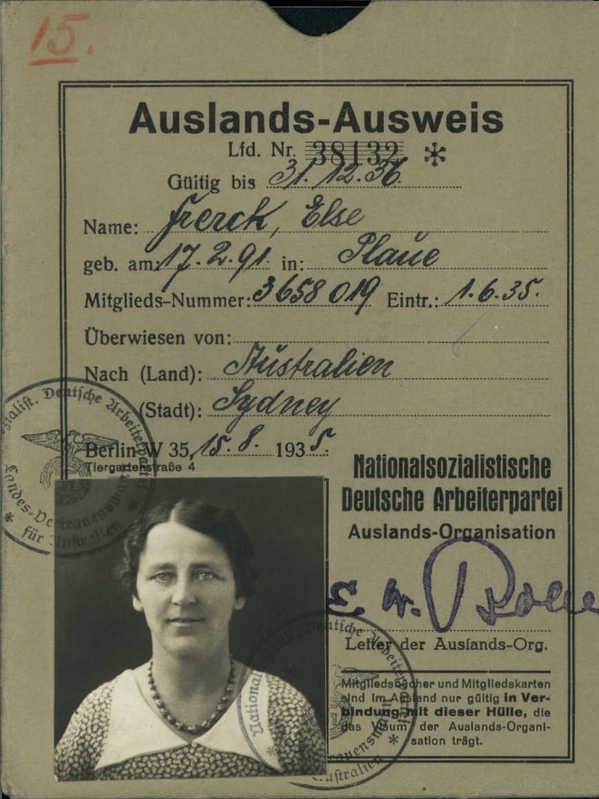 15.
Auslands-Ausweis
Lfd. Nr. 38132 *
Gültig bis 31.12.36.
Name: Frerck, Else
geb. am: 17.2.91. in: Plaue
Mitglieds-Nummer: 3658019 Eintr.: 1.6.35.
Überwiesen von:
Nach (Land): Australien
(Stadt): Sydney
Berlin W 35, 15.8. 1935.
Tiergartenstraße 4
Deutsche Arbeiter
Landes-Vertrauensmann
für Australien
Nationalsozialistische
Deutsche Arbeiterpartei
Auslands-Organisation
Leiter der Auslands-Org.
Mitgliedsbücher und Mitgliedskarten
sind im Ausland nur gültig in Ver-
bindung mit dieser Hülle, die
das Visum der Auslands-Organi-
sation trägt.
National
Deutsche Arbeiter
rauensmann
Australien